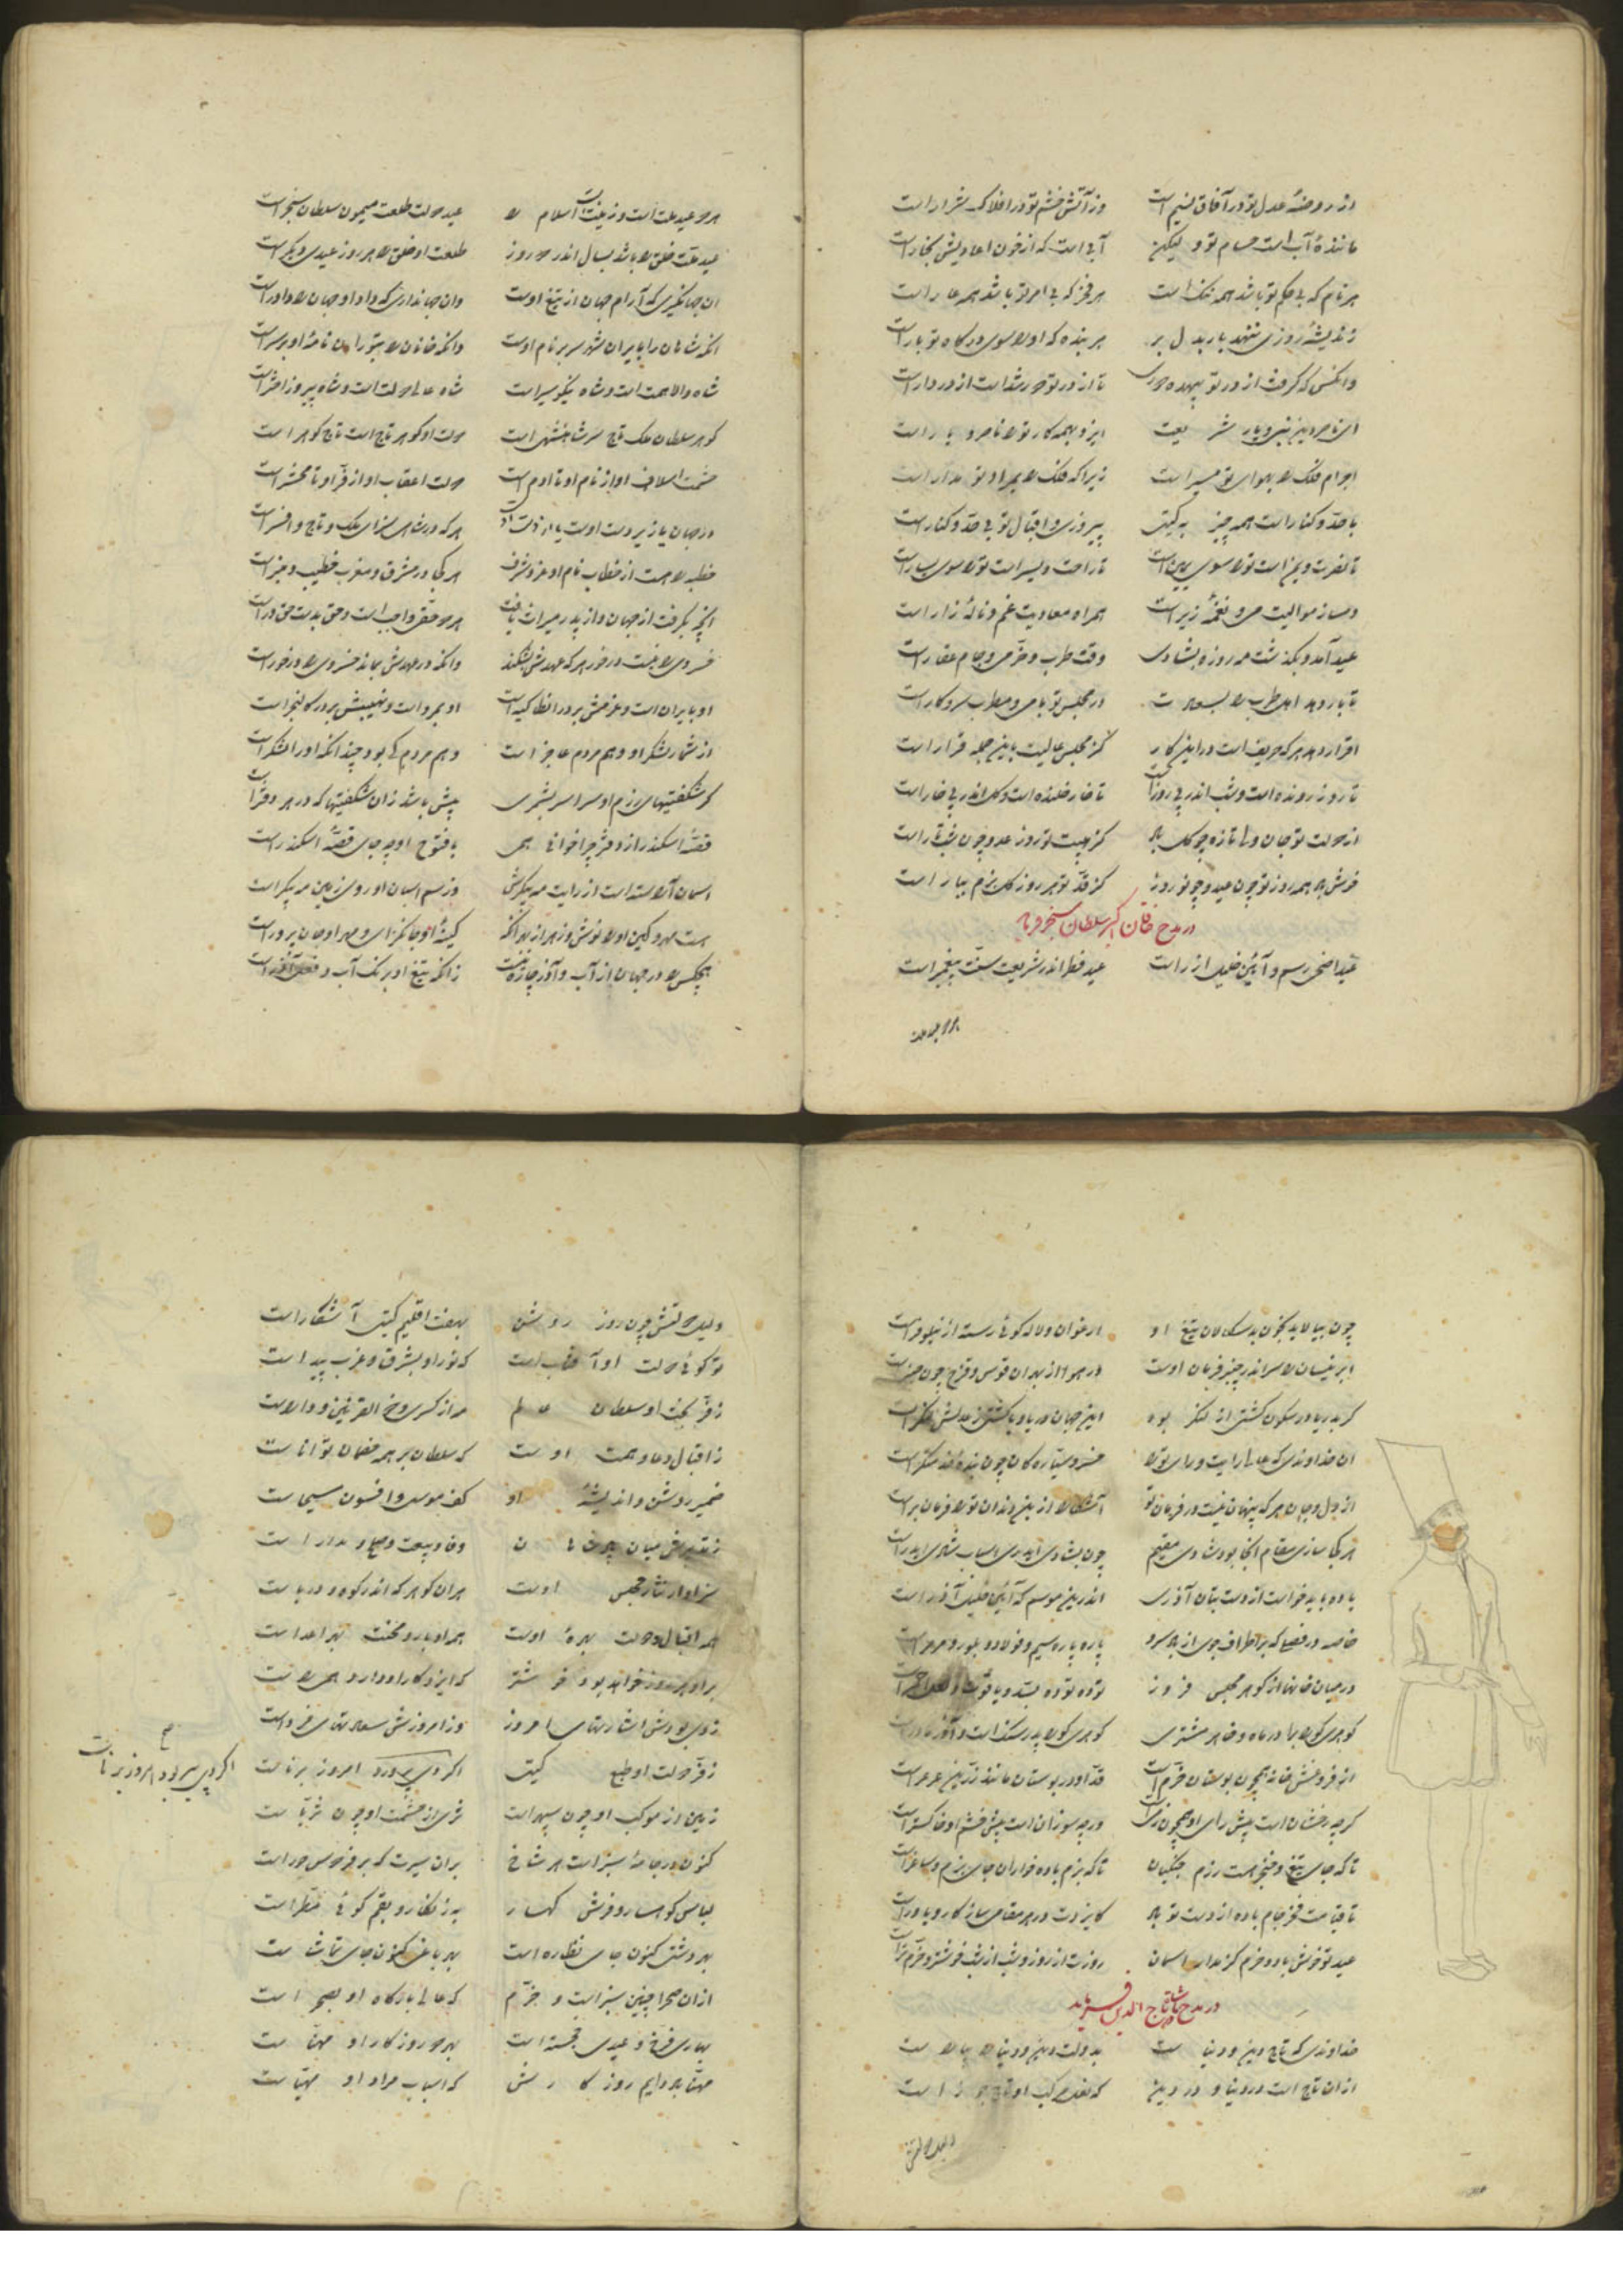 از روضهٔ عدل تو در آفاق نسیم است وز آتش خشم تو در افلاک شرار است
مانندهٔ آب است حسام تو و لیکن آبی است که از خون اعادیش بخار است
هر نام که بی حکم تو باشد همه ننگ است هر فخر که بی امر تو باشد همه عار است
ز اندیشهٔ روزی ننهد بار بدل بر هر بنده که او را سوی درگاه تو بار است
وانکس که گرفت از در تو بیهده دوری تا از در تو دور شد است از در دار است
ای ناصر دین نبی و یار شریعت ایزد بهمه کار ترا ناصر و یار است
اجرام فلک را بهوای تو مسیر است زیرا که فلک را بمراد تو مدار است
با حدّ و کنار است همه چیز به گیتی پیروزی و اقبال تو بی حدّ و کنار است
تا نصرت و یمن است ترا سوی یمین است تا راحت و یسر است ترا سوی یسار است
دمساز موالیت می و نغمهٔ زیر است همراه معادیت غم و نالهٔ زار است
عید آمد و بگذشت مه روزه بشادی وقت طرب و خرّمی و جام عقار است
در مجلس تو با می و مطرب سر و کار است
اقرار دهد هر که حریف است در این کار کز مجلس عالیت بدین جمله قرار است
تا روز رونده است و شب اندر پی روز است تا خار خلنده است و گل اندر پی خار است
از دولت تو جان ولی تازه چو گل باد کز هیبت تو روز عدو چون شب تار است
خوش باد همه روز تو چون عید و چو نوروز کز قدّ تو هر روز گل بزم ببار است
در مدح خاقان اکبر سلطان سنجر فرماید
عید اضحی رسم و آئین خلیل آزر است عید فطر اندر شریعت سنّت پیغمبر است
هر دو عید
هر دو عید ملت است و زینت اسلام را عید دولت طلعت میمون سلطان سنجر است
عید ملت خلق را باشد بسال اندر دو روز طلعت او خلق را هر روز عیدی دیگر است
آن جهانگیری که آرام جهان از تیغ اوست وان جهانداری که داد او جهان را داور است
آنکه شاهان را بایران شهر سر بر نام اوست وانکه خانان را بتوران نامهٔ او بر سر است
شاه والا همت است و شاه نیکو سیر است شاه عالی دولت است و شاه پیروز اختر است
گوهر سلطان ملک تاج سر شاهنشهی است دولت او گوهر تاج است تاج گوهر است
حشمت اسلاف او از نام او تا آدم است دولت اعقاب او از فرّ او تا محشر است
در جهان یا زیر دست اوست یا از دست او هر که در شاهی سزای ملک و تاج و افسر است
خطبه را هست از خطاب نام او عز و شرف هر کجا در مشرق و مغرب خطیب و منبر است
آنچ بگرفت از جهان و از پدر میراث یافت هر دو حقی واجب است و حق بدست حق ور است
خسروی را نیست در خور هر که عهدش بشکند وانکه در عهدش بماند خسروی را در خور است
او بایران است و عزمش بر در انطاکیه است او بمرو است و نهیبش بر در کالنجر است
از شمار لشکر او وهم مردم عاجز است وهم مردم کی بود چندانکه او را لشکر است
گر شگفتیهای رزم او سراسر بشمری بیش باشد زان شگفتیها که در هر دفتر است
قصهٔ اسکندر از دفتر چرا خوانی همی با فتوح او چه جای قصهٔ اسکندر است
آسمان آراسته است از رایت مه پیکرش وز سم اسبان او روی زمین مه پیکر است
هست مهر و کین او را نوش و زهر از بهر آنکه کینهٔ او جانگزای و مهر او جان پرور است
هیچکس را در جهان از آب و آذر چاره نیست زانکه تیغ او برنگ آب و فعل آذر است
چون بیالاید بخون بدسگالان تیغ او ارغوان و لاله گوئی رسته از نیلوفر است
ابر نیسان را سر اندر چنبر فرمان اوست در هوا از بهر آن قوس و قزح چون چنبر است
گر بدریا در سکون کشتی از لنگر بود این جهان دریا و یا کشتی ز عدلش لنگر است
آن خداوندی که عالی رایت و رای ترا خسرو سیّارگان چون بندهٔ خدمتگر است
از دل و جان هر که پنهان نیست در فرمان تو آشکارا از بن دندان ترا فرمان بر است
هر کجا سازی مقام آنجا بود شادی مقیم چون بشادی آیدری اسباب شادی ایدر است
باده باید خواست از دست بتان آذری اندرین موسم که آئین خلیل آذر است
خاصه در فصلی که بر اطراف جوی از باد سرد پاره پاره سیم و فولاد و بلور و مرمر است
در میان خانها از گوهر مجلس فروز توده توده بسّد و یاقوت و لعل احمر است
گوهری کو را بها در ماه و خاور مشتری گوهری کو را پدر سنگ است و آذر مادر است
از فروغش خانه همچون بوستان خرّم است قدّ او در بوستان مانند زرّین عرعر است
گرچه رخشان است پیش رای او همچون شب است ورچه سوزان است پیش خشم او خاکستر است
تا که جای تیغ و خنجر هست رزم جنگیان تا که بزم باده خواران جای بزم و ساغر است
تا قیامت فخر جام باده از دست تو باد کایزدت در هر مقامی ساز کار و یاور است
عید تو خوش باد و خرّم کز مدار آسمان روزت از روز و شب از شب خوشتر و خرّم تر است
در مدح تاج الدین فرماید
خداوندی که تاج دین و دنیا ست بدولت دین و دنیا را بیاراست
از آن تاج است در دنیا و در دین که نعل مرکب او تاج جوزاست
ولیک دولتش
ولیک دولتش چون روز روشن بهفت اقلیم گیتی آشکار است
تو گوئی دولت او آفتاب است که نور او بشرق و غرب پیداست
ز فرّ بخت او سلطان عالم
ز اقبال و دعا و همت اوست که سلطان بر همه خصمان تواناست
ضمیر روشن و اندیشهٔ او کف موسی و افسون مسیحاست
وفا و بیعت و صلح و مداراست
سزاوار نثار مجلس اوست هر آن گوهر که اندر کوه و دریاست
همه اقبال و دولت بهرهٔ اوست همه ادبار و محنت بهر اعداست
بر او هر روز خواهد بود خوشتر که ایزد کار او دارد همی راست
ز دی بودش اشارتهای امروز وز امروزش سعادتهای فرداست
ز فرّ دولت او طبع گیتی اگر دی پیر بود امروز برناست
اگر دی پیر بود امروز برناست
زمین از موکب او چون سپهر است ثری از حشمت او چون ثریّاست
کنون در جامهٔ سبز است هر شاخ بر آن سیرت که بر فردوس حوراست
لباس کوهسار و فرش کهسار به زنگار و بقم گوئی مطراست
بهر دشتی کنون جای نظاره است بهر باغی کنون جای تماشاست
از آن صحرا چنین سبز است و خرّم که عالی بارگاه او بصحراست
بهاری فرّخ و عیدی خجسته است بهر دو روزگار او مهنّاست
مهنّا باد دایم روزگارش که اسباب مراد او مهیّاست